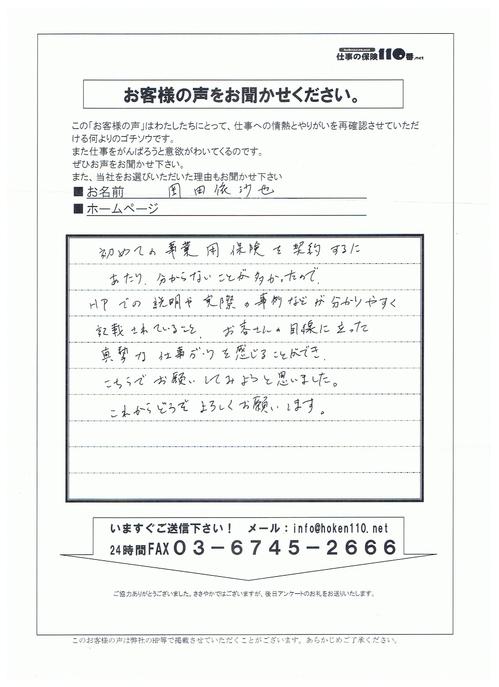 仕事の保険110番.net
お客様の声をお聞かせください。
この「お客様の声」はわたしたちにとって、仕事への情熱とやりがいを再確認させていただ
ける何よりのゴチソウです。
また仕事をがんばろうと意欲がわいてくるのです。
ぜひお声をお聞かせ下さい。
また、当社をお選びいただいた理由もお聞かせ下さい
■お名前 田依沙也
■ホームページ
初めての事業用保険を契約するに
あたり、分からないことが多かったので、
HPでの説明や実際の事例などが分かりやすく
記載されていること、お客さんの目線に立った
真摯な仕事ぶりを感じることができ、
こちらでお願いしてみようと思いました。
これからどうぞよろしくお願いします。
いますぐご送信下さい！ メール：info@hoken110.net
24時間FAX03－6745－2666
ご協力ありがとうございました。ささやかではございますが、後日アンケートのお礼をお送りいたします。
このお客様の声は弊社のHP等で掲載させていただくことがございます。あらかじめご了承ください。